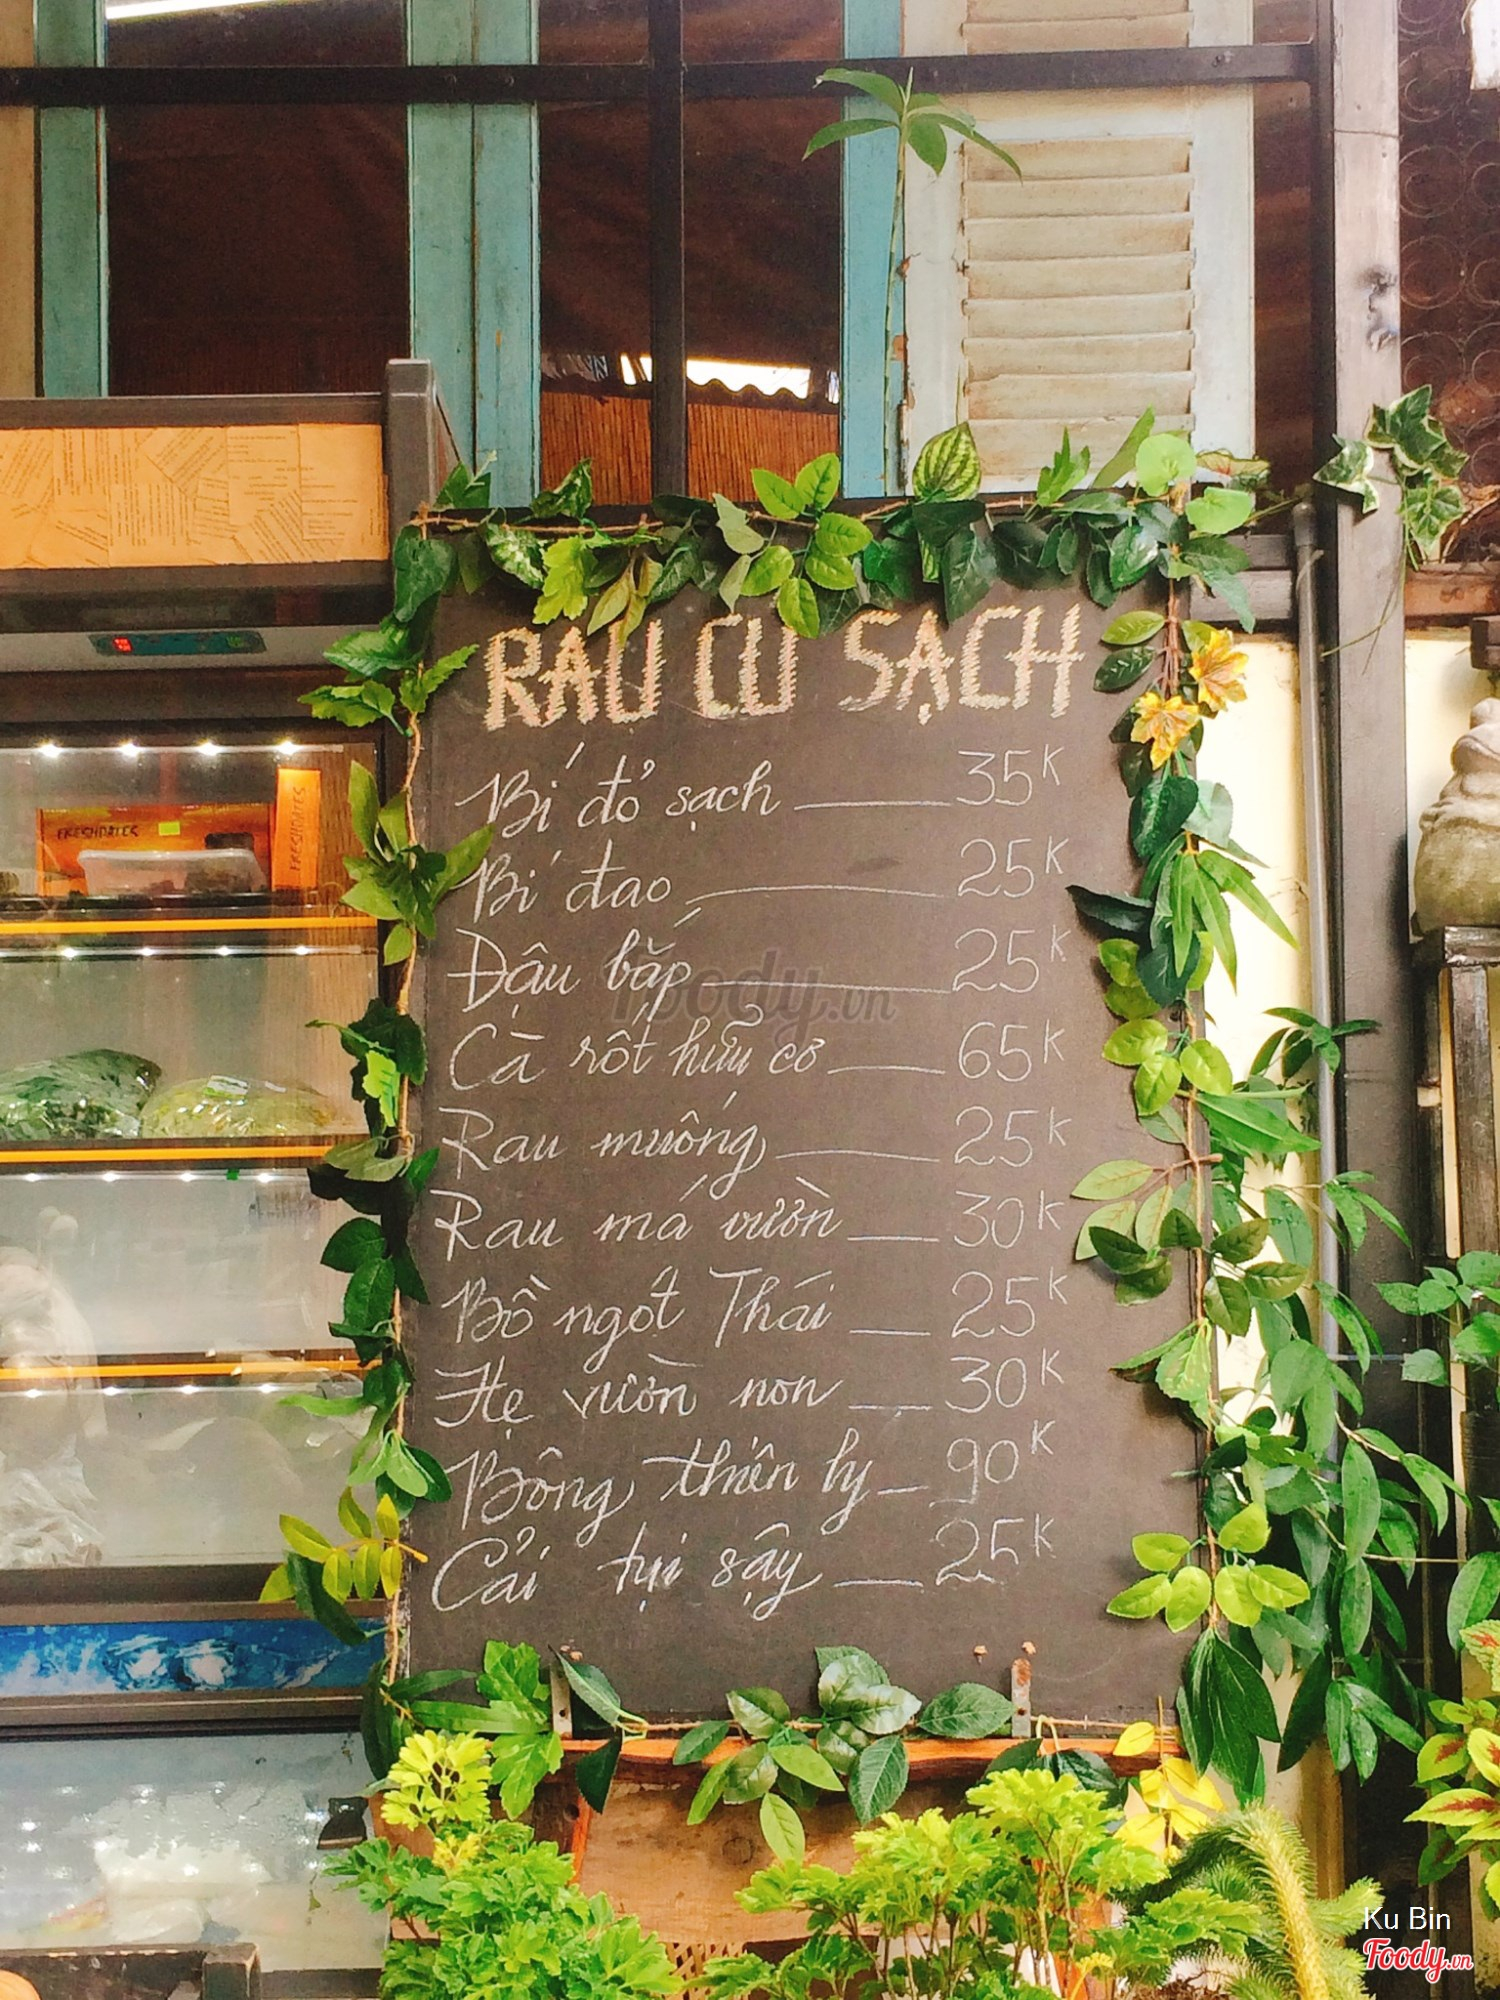 RAU CỦ SẠCH
Bí đỏ sạch 35K
Bí đao 25K
Đậu bắp 25K
Cà rốt hữu cơ 65K
Rau muống 25K
Rau má vườn 30K
Bồ ngót Thái 25K
Hẹ vườn non 30K
Bông thiên lý 90K
Cải tụi sậy 25K
FRESHDATES
FRESHDATES
foody.vn
Ku Bin
Foody.vn